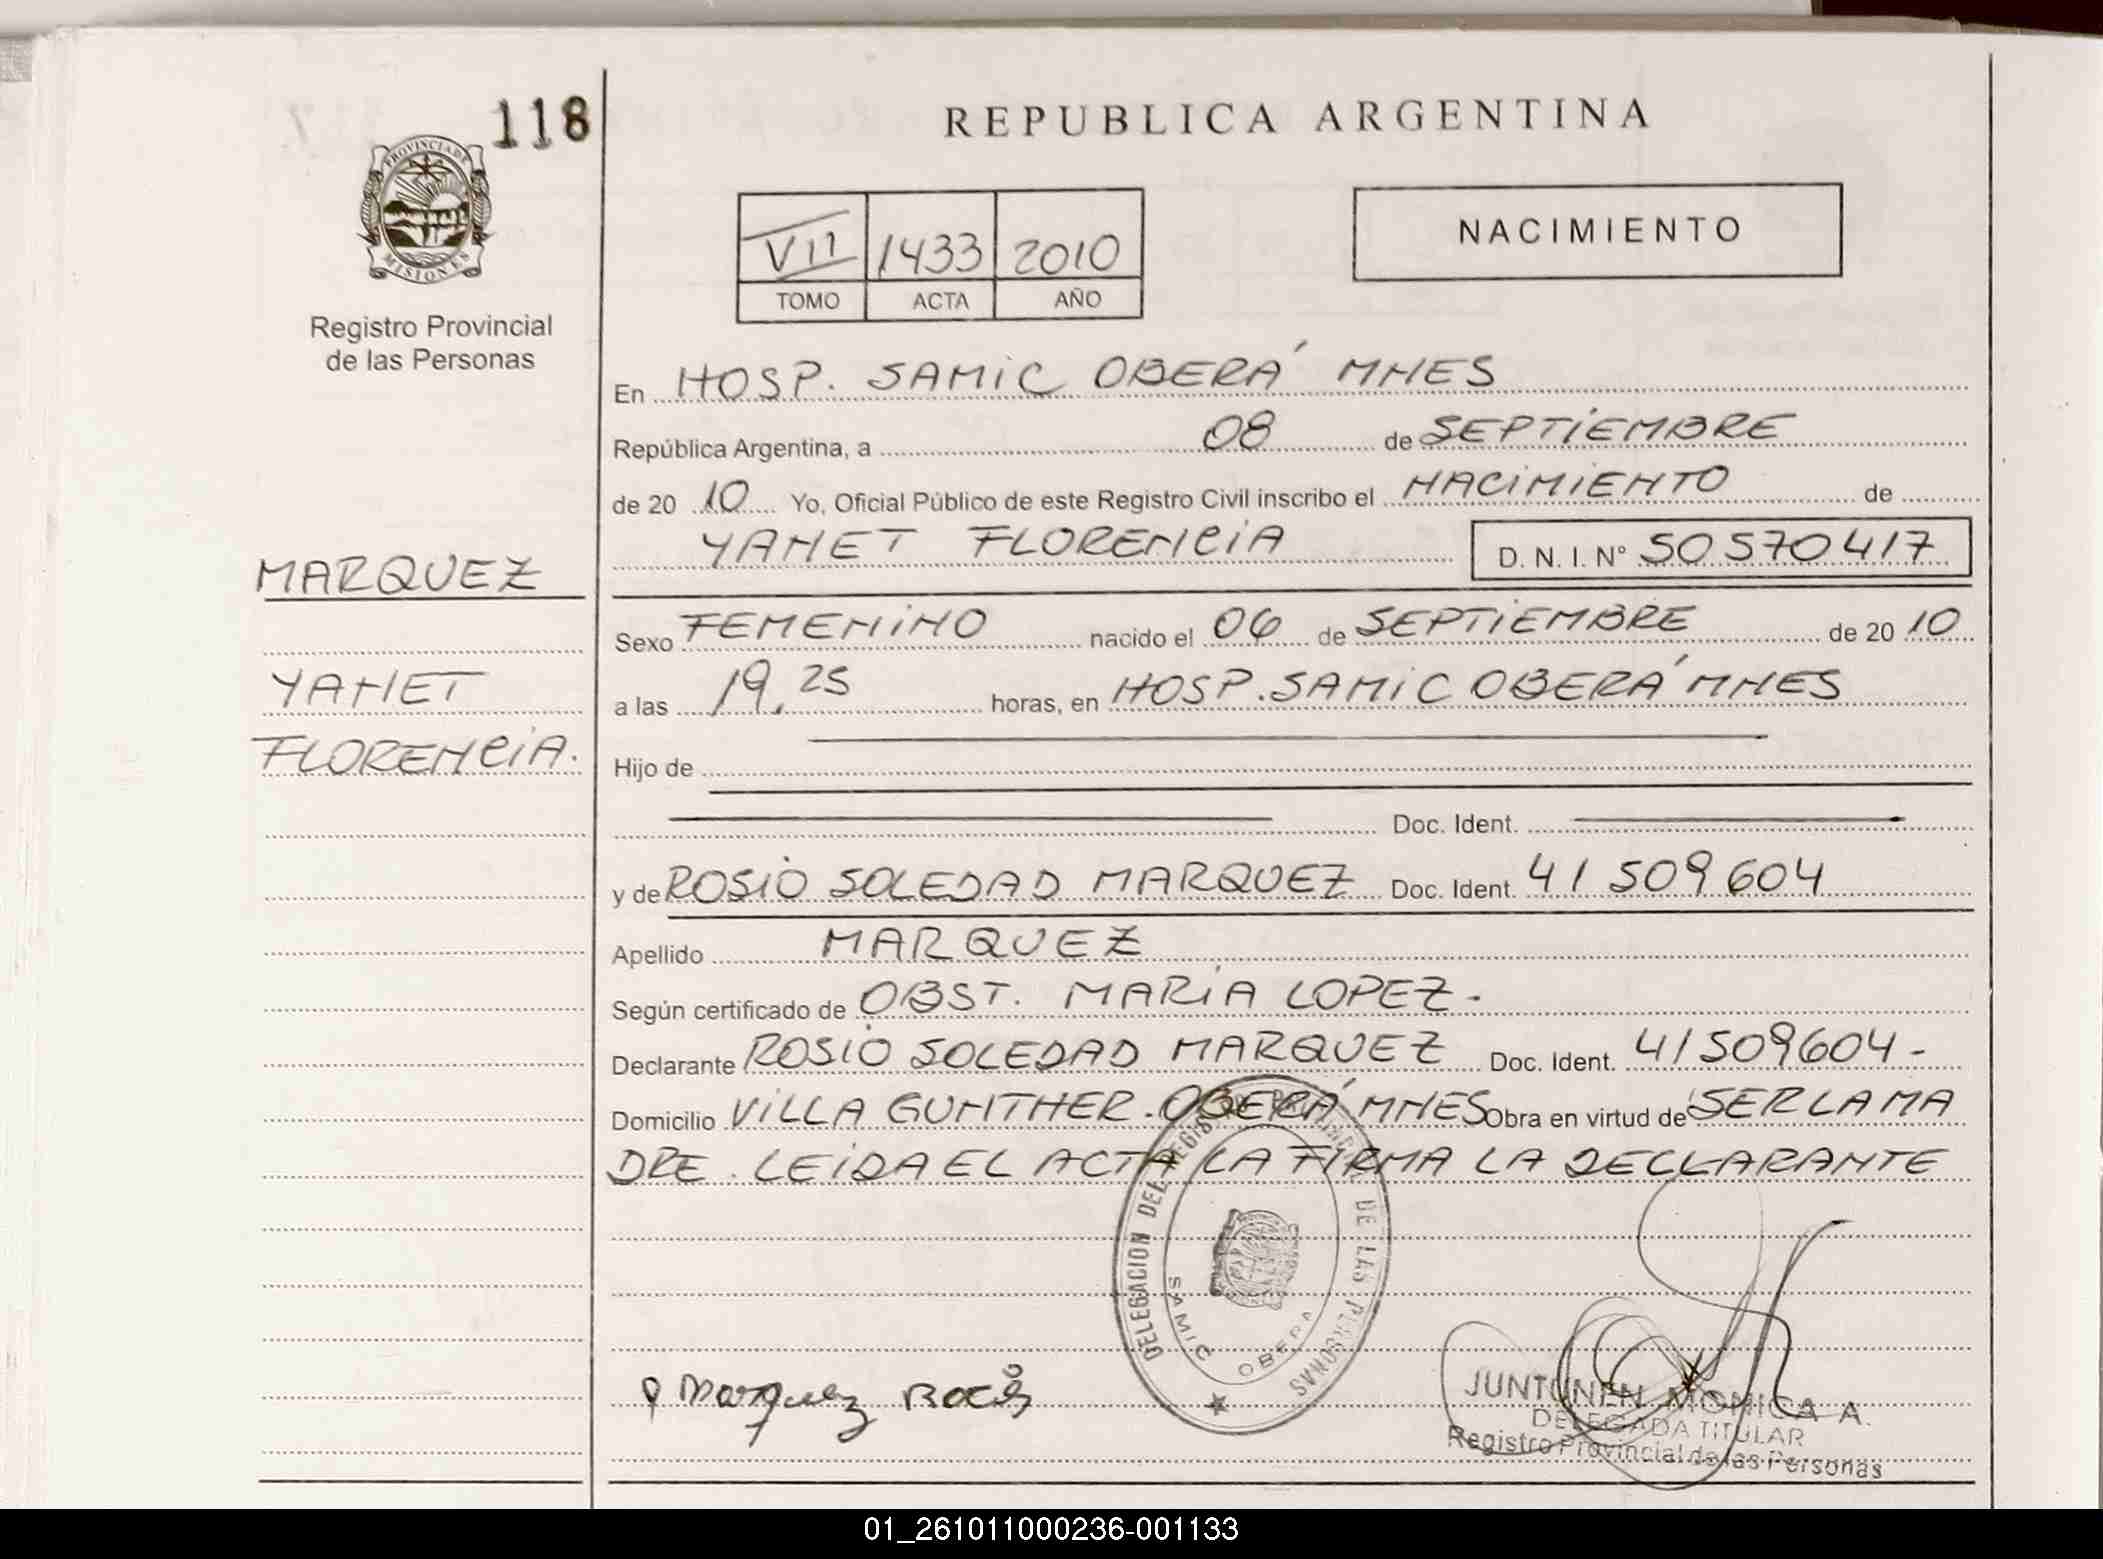 118
PROVINCIA DE
MISIONES
Registro Provincial
de las Personas
MARQUEZ
YANET
FLORENCIA.
REPUBLICA ARGENTINA
VII 1433 2010
TOMO ACTA AÑO
NACIMIENTO
En HOSP. SAMIC OBERÁ MNES
República Argentina, a 08 de SEPTIEMBRE
de 20 10 Yo, Oficial Público de este Registro Civil inscribo el NACIMIENTO de
YANET FLORENCIA D. N. I. N° 50570417
Sexo FEMENINO nacido el 06 de SEPTIEMBRE de 20 10
a las 19,25 horas, en HOSP. SAMIC OBERÁ MNES
Hijo de
Doc. Ident.
y de ROSIO SOLEDAD MARQUEZ Doc. Ident. 41509604
Apellido MARQUEZ
Según certificado de OBST. MARIA LOPEZ.
Declarante ROSIO SOLEDAD MARQUEZ Doc. Ident. 41509604-
Domicilio VILLA GUNTHER. OBERÁ MNES Obra en virtud de SER LA MA
DRE. LEIDA EL ACTA LA FIRMA LA DECLARANTE
DELEGACION DEL REGISTRO PROVINCIAL DE LAS PERSONAS
SAMIC OBERA
Marquez Rocío
JUNTUNEN MONICA A.
DELEGADA TITULAR
Registro Provincial de las Personas
01_261011000236-001133